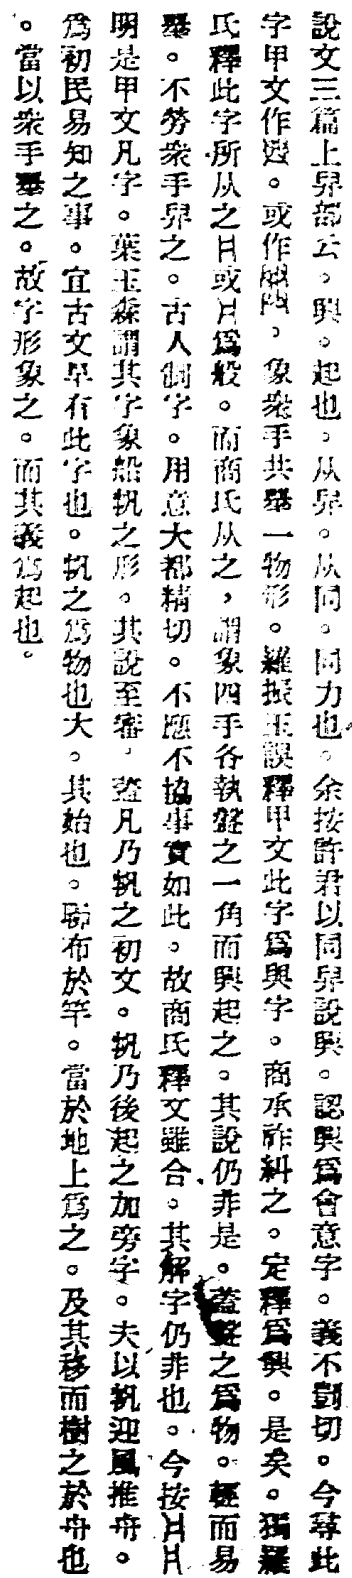 說文三篇上舁部云。興。起也。从舁。从同。同力也。余按許君以同舁說興。認興爲會意字。義不剴切。今尋此
字甲文作。或作，象衆手共舉一物形。羅振玉誤釋甲文此字爲與字。商承祚糾之。定釋爲興。是矣。獨羅
氏釋此字所从之或爲般。而商氏从之，謂象四手各執盤之一角而興起之。其說仍非是。蓋盤之爲物。輕而易
舉。不勞衆手舁之。古人制字。用意大都精切。不應不協事實如此。故商氏釋文雖合。其解字仍非也。今按
明是甲文凡字。葉玉森謂其字象船帆之形。其說至審，蓋凡乃帆之初文。帆乃後起之加旁字。夫以帆迎風推舟。
爲初民易知之事。宜古文早有此字也。帆之爲物也大。其始也。聯布於竿。當於地上爲之。及其移而樹之於舟也
。當以衆手舉之。故字形象之。而其義爲起也。